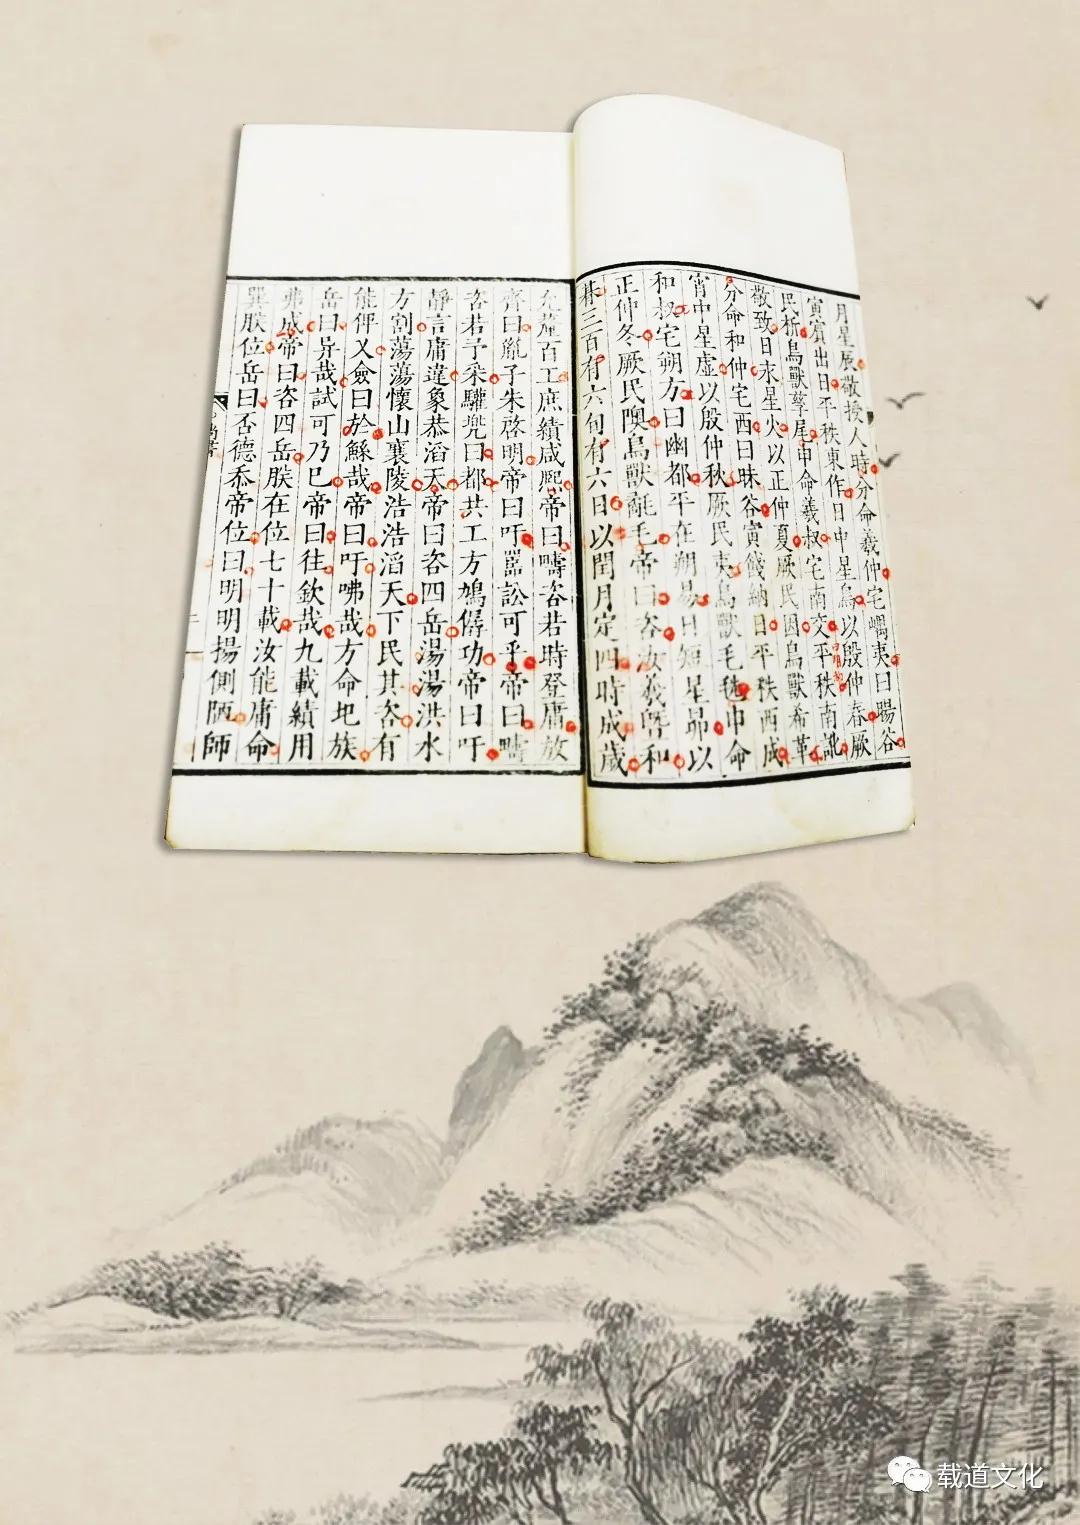 月星辰敬授人時分命羲仲宅嵎夷曰暘谷
寅賓出日平秩東作日中星鳥以殷仲春厥
民析鳥獸孳尾申命羲叔宅南交平秩南訛
敬致日永星火以正仲夏厥民因鳥獸希革
分命和仲宅西曰昧谷寅餞納日平秩西成
宵中星虛以殷仲秋厥民夷鳥獸毛毨申命
和叔宅朔方曰幽都平在朔易日短星昴以
正仲冬厥民隩鳥獸氄毛帝曰咨汝羲暨和
朞三百有六旬有六日以閏月定四時成歲
允釐百工庶績咸熙帝曰疇咨若時登庸放
齊曰胤子朱啓明帝曰吁嚚訟可乎帝曰疇
咨若予采驩兜曰都共工方鳩僝功帝曰吁
靜言庸違象恭滔天帝曰咨四岳湯湯洪水
方割蕩蕩懷山襄陵浩浩滔天下民其咨有
能俾乂僉曰於鯀哉帝曰吁咈哉方命圮族
岳曰异哉試可乃已帝曰往欽哉九載績用
弗成帝曰咨四岳朕在位七十載汝能庸命
巽朕位岳曰否德忝帝位曰明明揚側陋師
尚書
载道文化